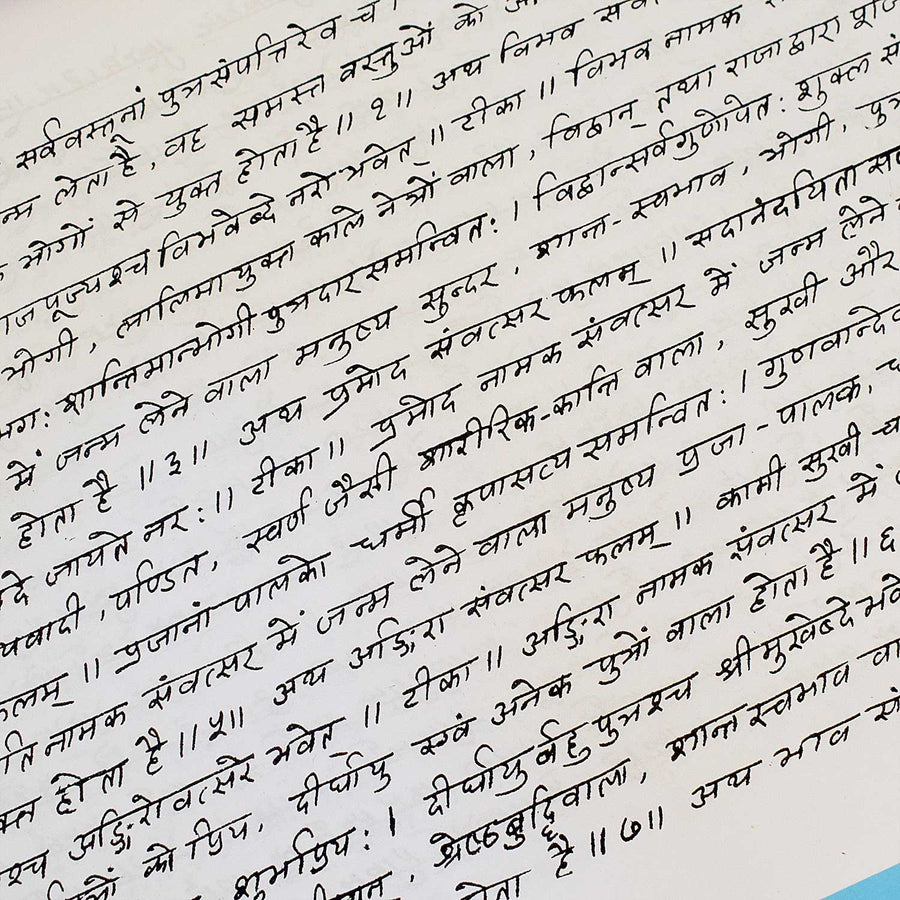 सर्ववस्तूनां पुत्रसंपत्तिरेव च ।
न्म लेता है, वह समस्त वस्तुओं को
भोगों से युक्त होता है ॥ १ ॥ अथ विभव
राजपूज्यश्च विभवेब्दे नरो भवेत् ॥ टीका ॥ विभव नामक
भोगी, लालिमायुक्त काले नेत्रों वाला, विद्वान् तथा राजा द्वारा
भगः शान्तिमान्भोगी पुत्रदारसमन्वितः । विद्वान्सर्वगुणोपेतः शुक्ल
में जन्म लेने वाला मनुष्य सुन्दर, शान्त-स्वभाव, भोगी,
होता है ॥ ३ ॥ अथ प्रमोद संवत्सर फलम् ॥ सदानंदयिता
ब्दे जायते नरः ॥ टीका ॥ प्रमोद नामक संवत्सर में जन्म लेने
यवादी, पण्डित, स्वर्ण जैसी शारीरिक-कान्ति वाला, सुखी और
फलम् ॥ प्रजानां पालको धर्मी कृपासत्य समन्वितः । गुणवान्दे
ति नामक संवत्सर में जन्म लेने वाला मनुष्य प्रजा-पालक,
क्त होता है ॥ ५ ॥ अथ अङ्गिरा संवत्सर फलम् ॥ कामी सुखी
श्च अङ्गिरोवत्सरे भवेत ॥ टीका ॥ अङ्गिरा नामक संवत्सर में
को प्रिय, दीर्घायु एवं अनेक पुत्रों वाला होता है ॥ ६
शुर्मप्रियः । दीर्घायुर्बहुपुत्रश्च श्रीमुखेब्दे भवे
, श्रेष्ठबुद्धिवाला, शान्तस्वभाव
होता है ॥ ७ ॥ अथ भाव सं